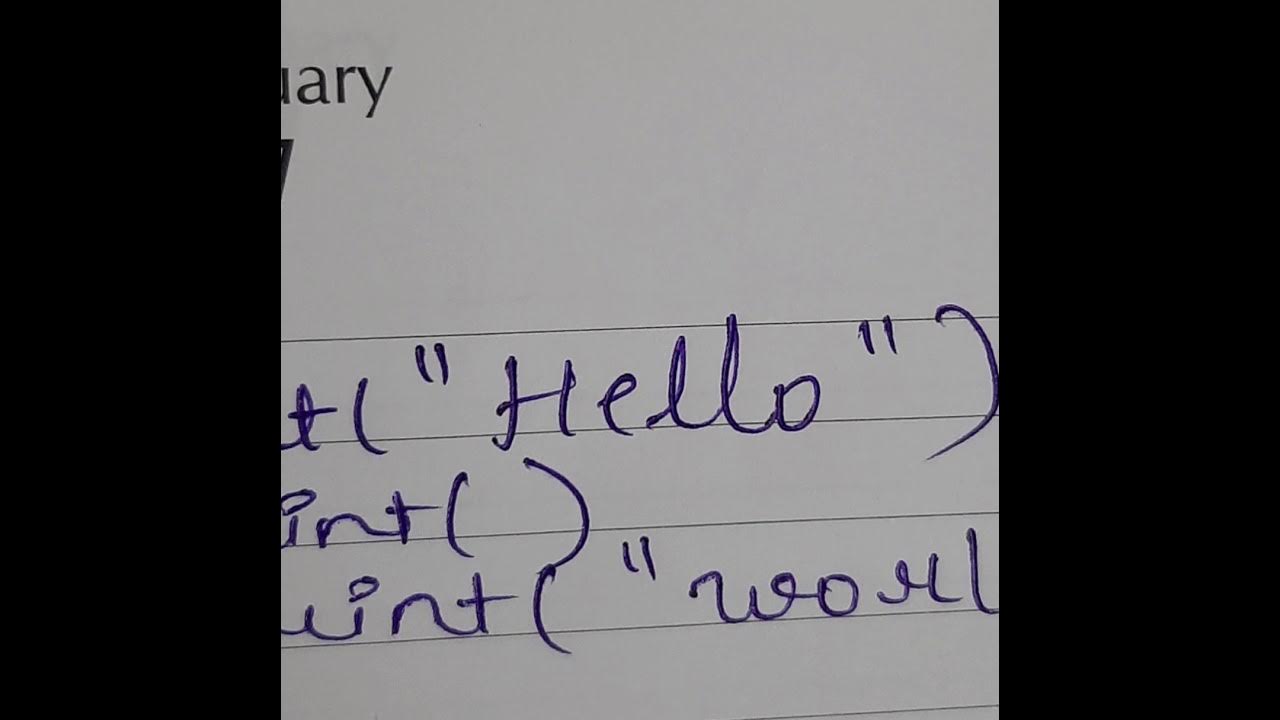 uary
t("Hello")
int()
rint("worl